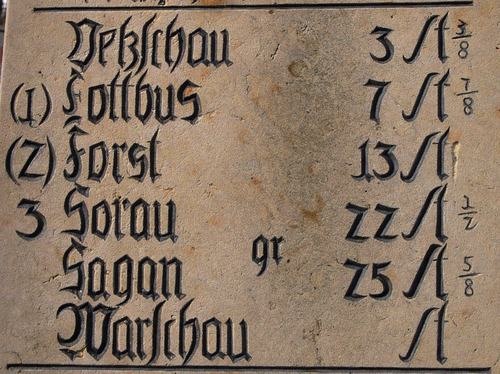 Vetzſchau 3 St 3/8
(1) Cottbus 7 St 7/8
(2) Forst 13 St
3 Sorau 22 St 1/2
gr.
Sagan 25 St 5/8
Warſchau St